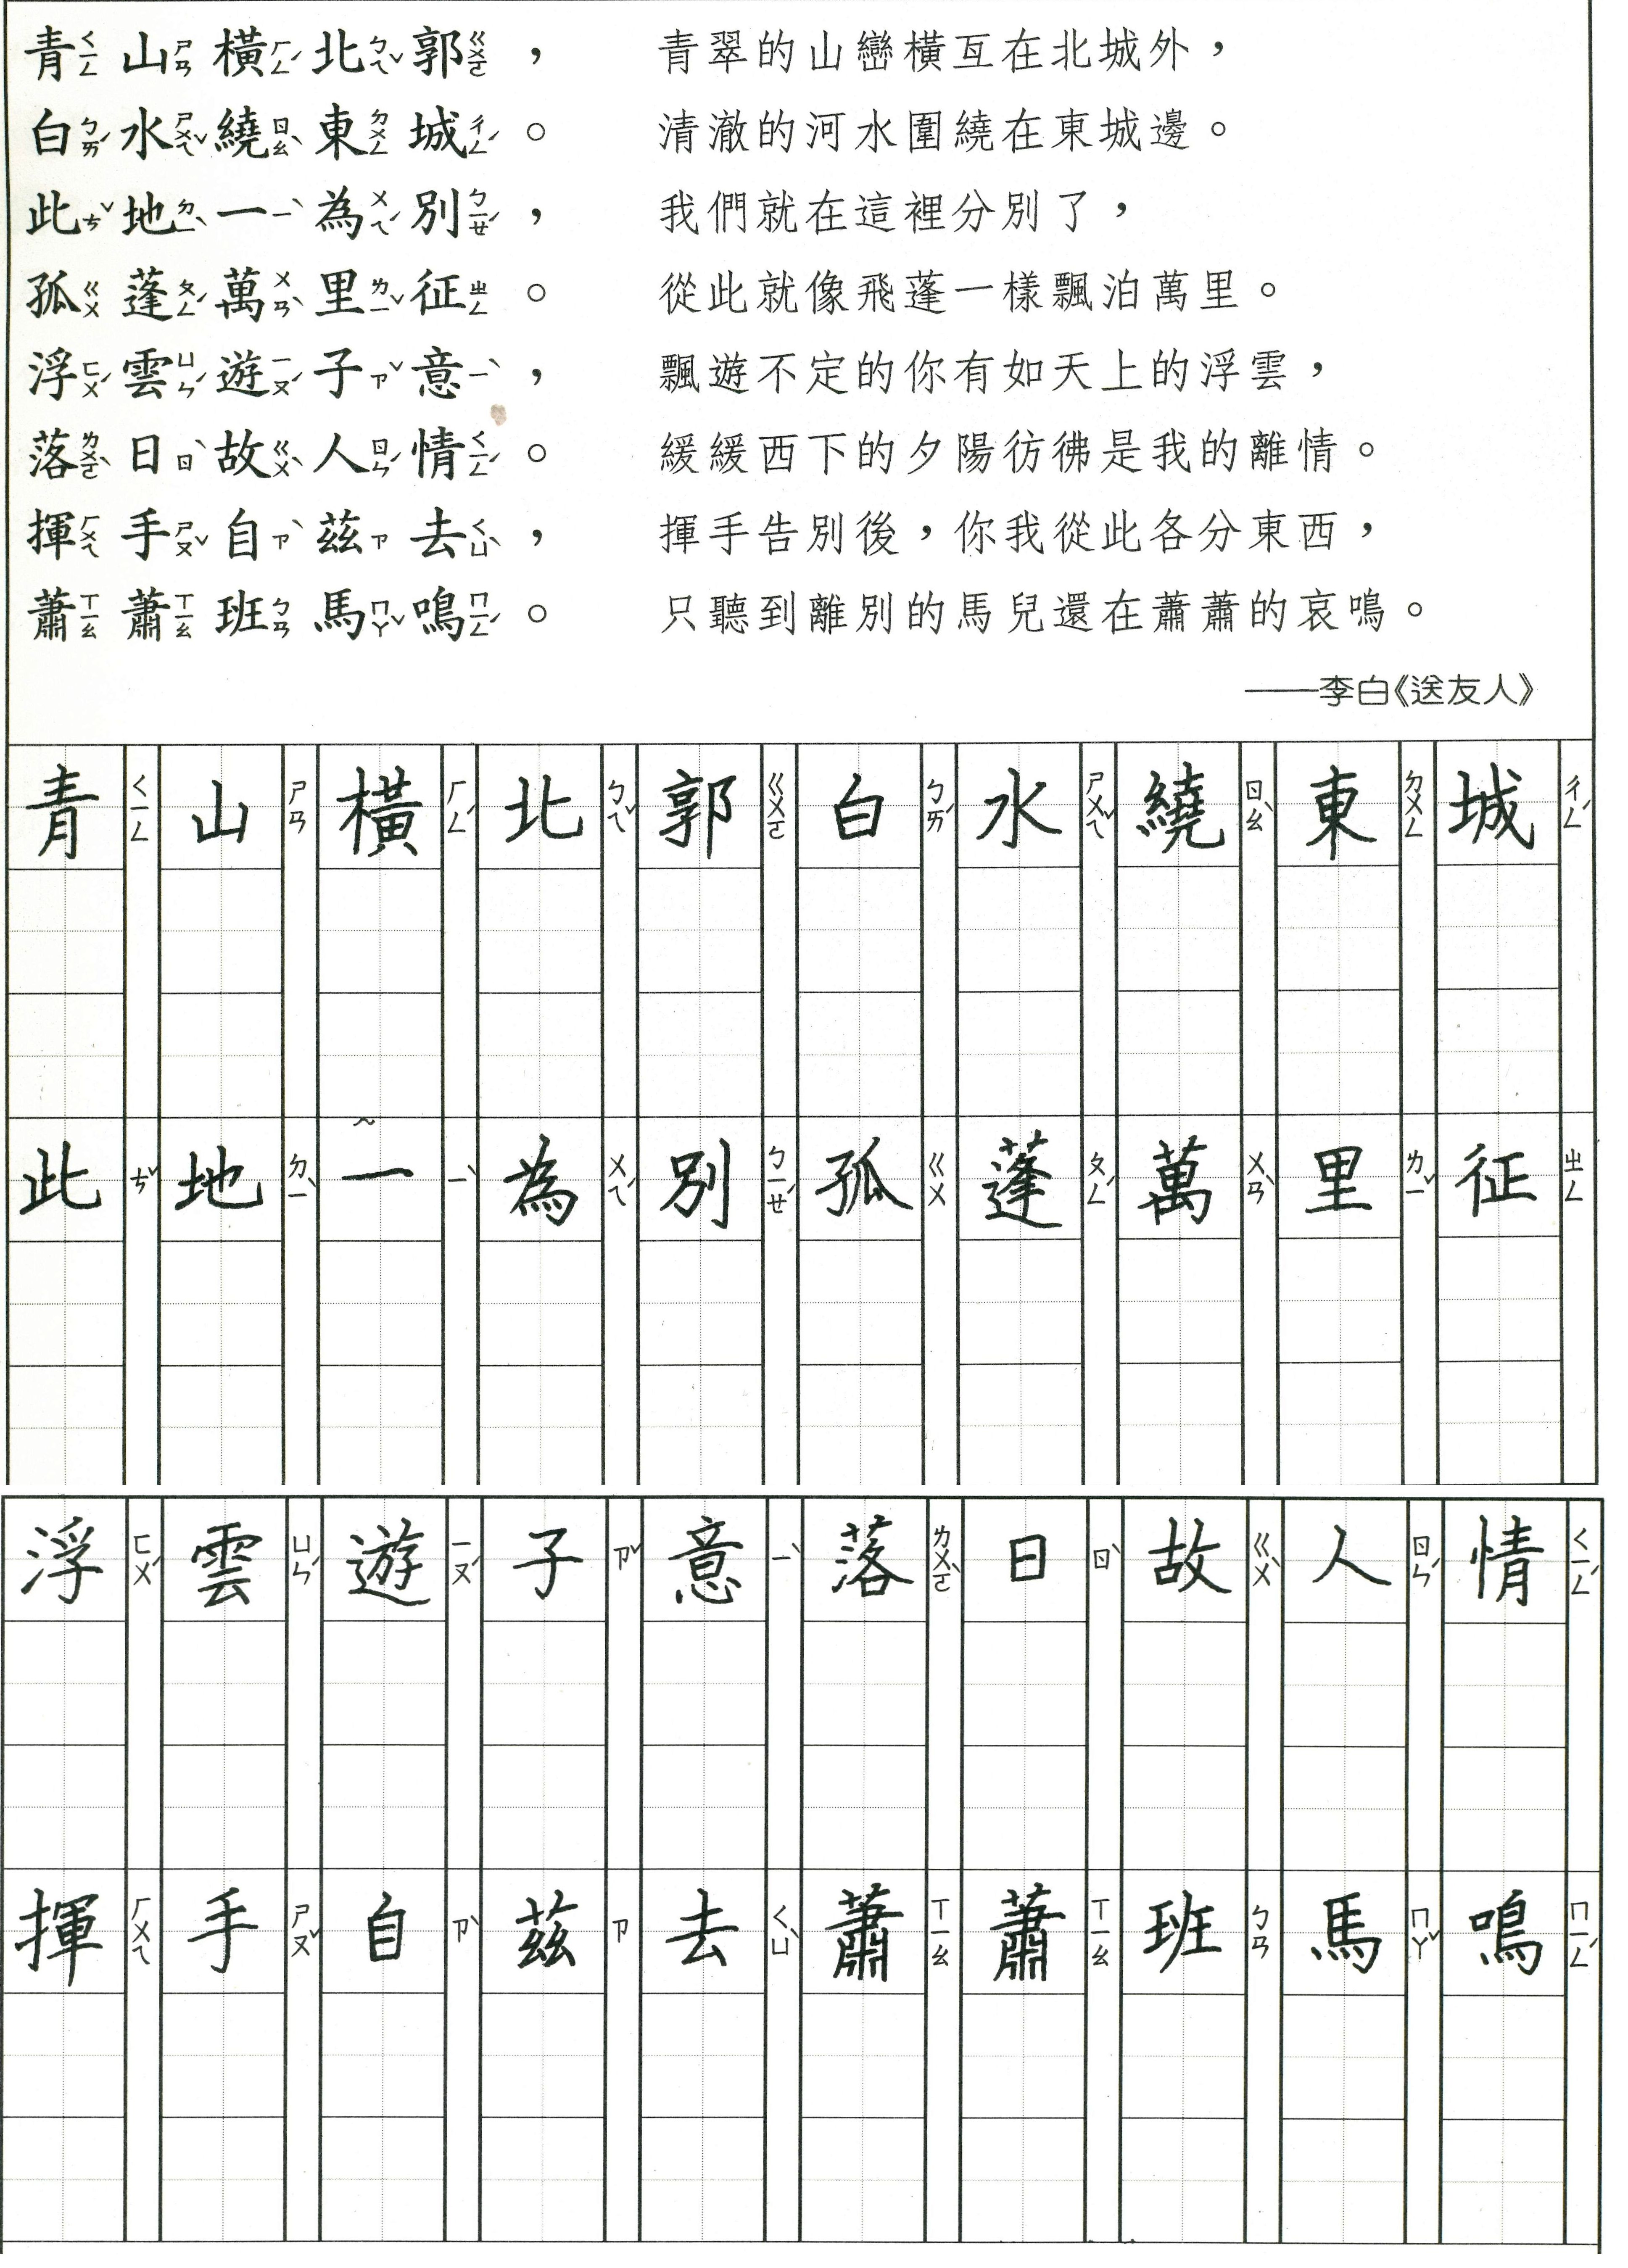 青ㄑㄧㄥ山ㄕㄢ橫ㄏㄥˊ北ㄅㄟˇ郭ㄍㄨㄛ， 青翠的山巒橫亙在北城外，
白ㄅㄞˊ水ㄕㄨㄟˇ繞ㄖㄠˋ東ㄉㄨㄥ城ㄔㄥˊ。 清澈的河水圍繞在東城邊。
此ㄘˇ地ㄉㄧˋ一ㄧˋ為ㄨㄟˊ別ㄅㄧㄝˊ， 我們就在這裡分別了，
孤ㄍㄨ蓬ㄆㄥˊ萬ㄨㄢˋ里ㄌㄧˇ征ㄓㄥ。 從此就像飛蓬一樣飄泊萬里。
浮ㄈㄨˊ雲ㄩㄣˊ遊ㄧㄡˊ子ㄗˇ意ㄧˋ， 飄遊不定的你有如天上的浮雲，
落ㄌㄨㄛˋ日ㄖˋ故ㄍㄨˋ人ㄖㄣˊ情ㄑㄧㄥˊ。 緩緩西下的夕陽彷彿是我的離情。
揮ㄏㄨㄟ手ㄕㄡˇ自ㄗˋ茲ㄗ去ㄑㄩˋ， 揮手告別後，你我從此各分東西，
蕭ㄒㄧㄠ蕭ㄒㄧㄠ班ㄅㄢ馬ㄇㄚˇ鳴ㄇㄧㄥˊ。 只聽到離別的馬兒還在蕭蕭的哀鳴。
——李白《送友人》
青ㄑㄧㄥ山ㄕㄢ橫ㄏㄥˊ北ㄅㄟˇ郭ㄍㄨㄛ白ㄅㄞˊ水ㄕㄨㄟˇ繞ㄖㄠˋ東ㄉㄨㄥ城ㄔㄥˊ
此ㄘˇ地ㄉㄧˋ一ㄧˋ為ㄨㄟˊ別ㄅㄧㄝˊ孤ㄍㄨ蓬ㄆㄥˊ萬ㄨㄢˋ里ㄌㄧˇ征ㄓㄥ
浮ㄈㄨˊ雲ㄩㄣˊ遊ㄧㄡˊ子ㄗˇ意ㄧˋ落ㄌㄨㄛˋ日ㄖˋ故ㄍㄨˋ人ㄖㄣˊ情ㄑㄧㄥˊ
揮ㄏㄨㄟ手ㄕㄡˇ自ㄗˋ茲ㄗ去ㄑㄩˋ蕭ㄒㄧㄠ蕭ㄒㄧㄠ班ㄅㄢ馬ㄇㄚˇ鳴ㄇㄧㄥˊ